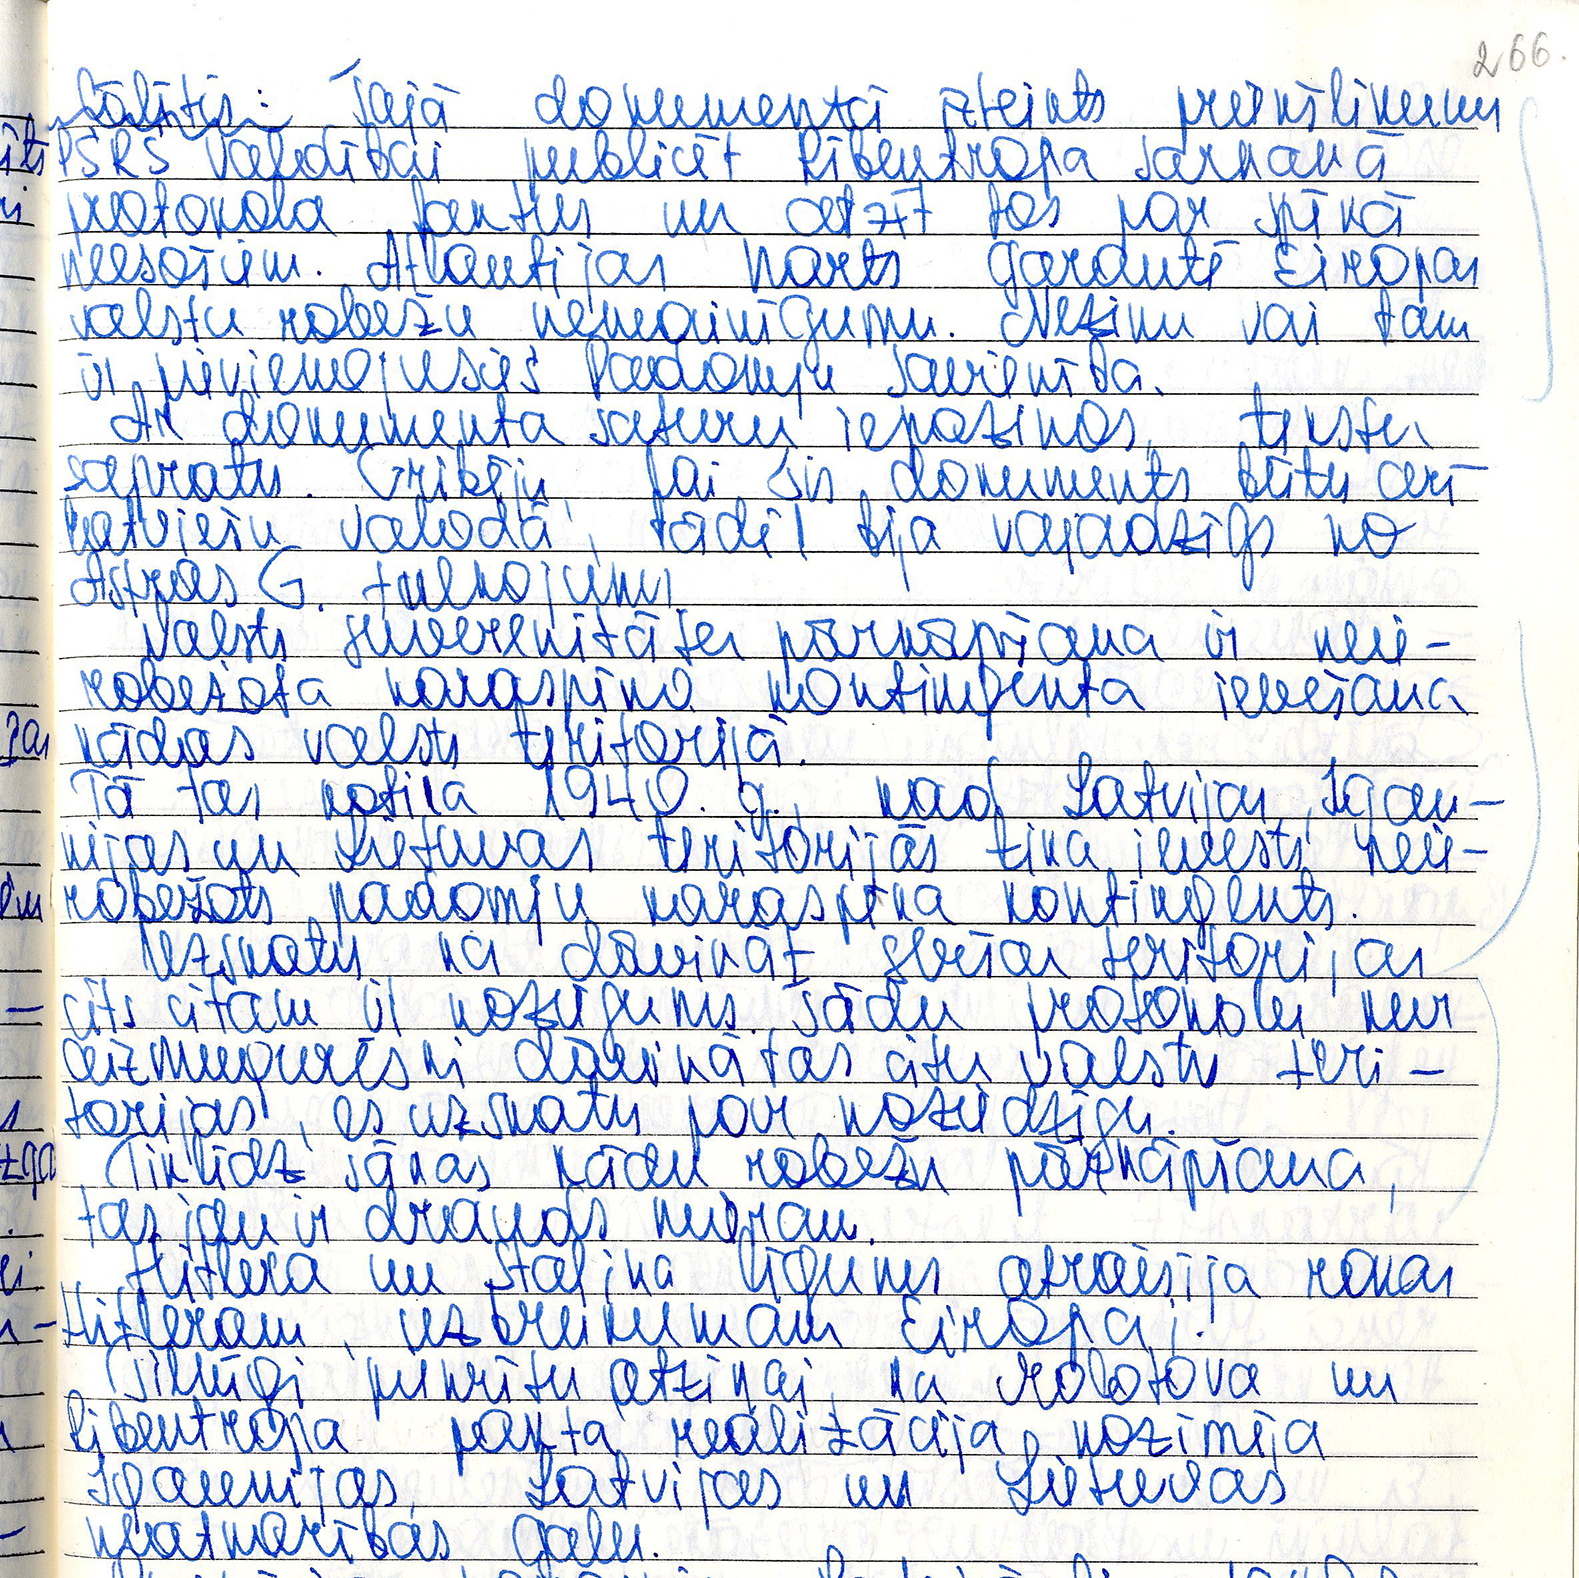 266.
Šajā dokumentā izteikts priekšlikums
PSRS valdībai publicēt Ribentropa sarkanā
protokola faktus un atzīt tos par spēkā
neesošiem. Atlantijas harts garantē Eiropas
valstu robežu nemainīgumu. Nezinu vai tam
ir pievienojusies Padomju Savienība.
Ar dokumenta saturu iepazinos, tekstu
sapratu. Gribēju, lai šis dokuments būtu arī
latviešu valodā, tādēļ bija vajadzīgs no
Astras G. tulkojums
Valsts suverenitātes pārkāpšana ir neie-
robežota karaspēka kontingenta ievešana
kādas valsts teritorijā.
Tā tas notika 1940. g., kad Latvijas, Igau-
nijas un Lietuvas teritorijās tika ievests neie-
robežots padomju karaspēka kontingents.
Uzskatu ka dāvināt svešas teritorijas
cits citam ir noziegums. Šādu protokolu kur
aizmuguriski dāvinātas citu valstu teri-
torijas, es uzskatu par noziedzīgu.
Tiklīdz sākas kādu robežu pārkāpšana,
tas jau ir drauds mieram.
Hitlera un Staļina līgums atraisīja rokas
Hitleram, uzbrukumam Eiropai.
Pilnīgi piekrītu atziņai, ka Molotova un
Ribentropa pakta realizācija nozīmēja
Igaunijas, Latvijas un Lietuvas
neatkarības galu.